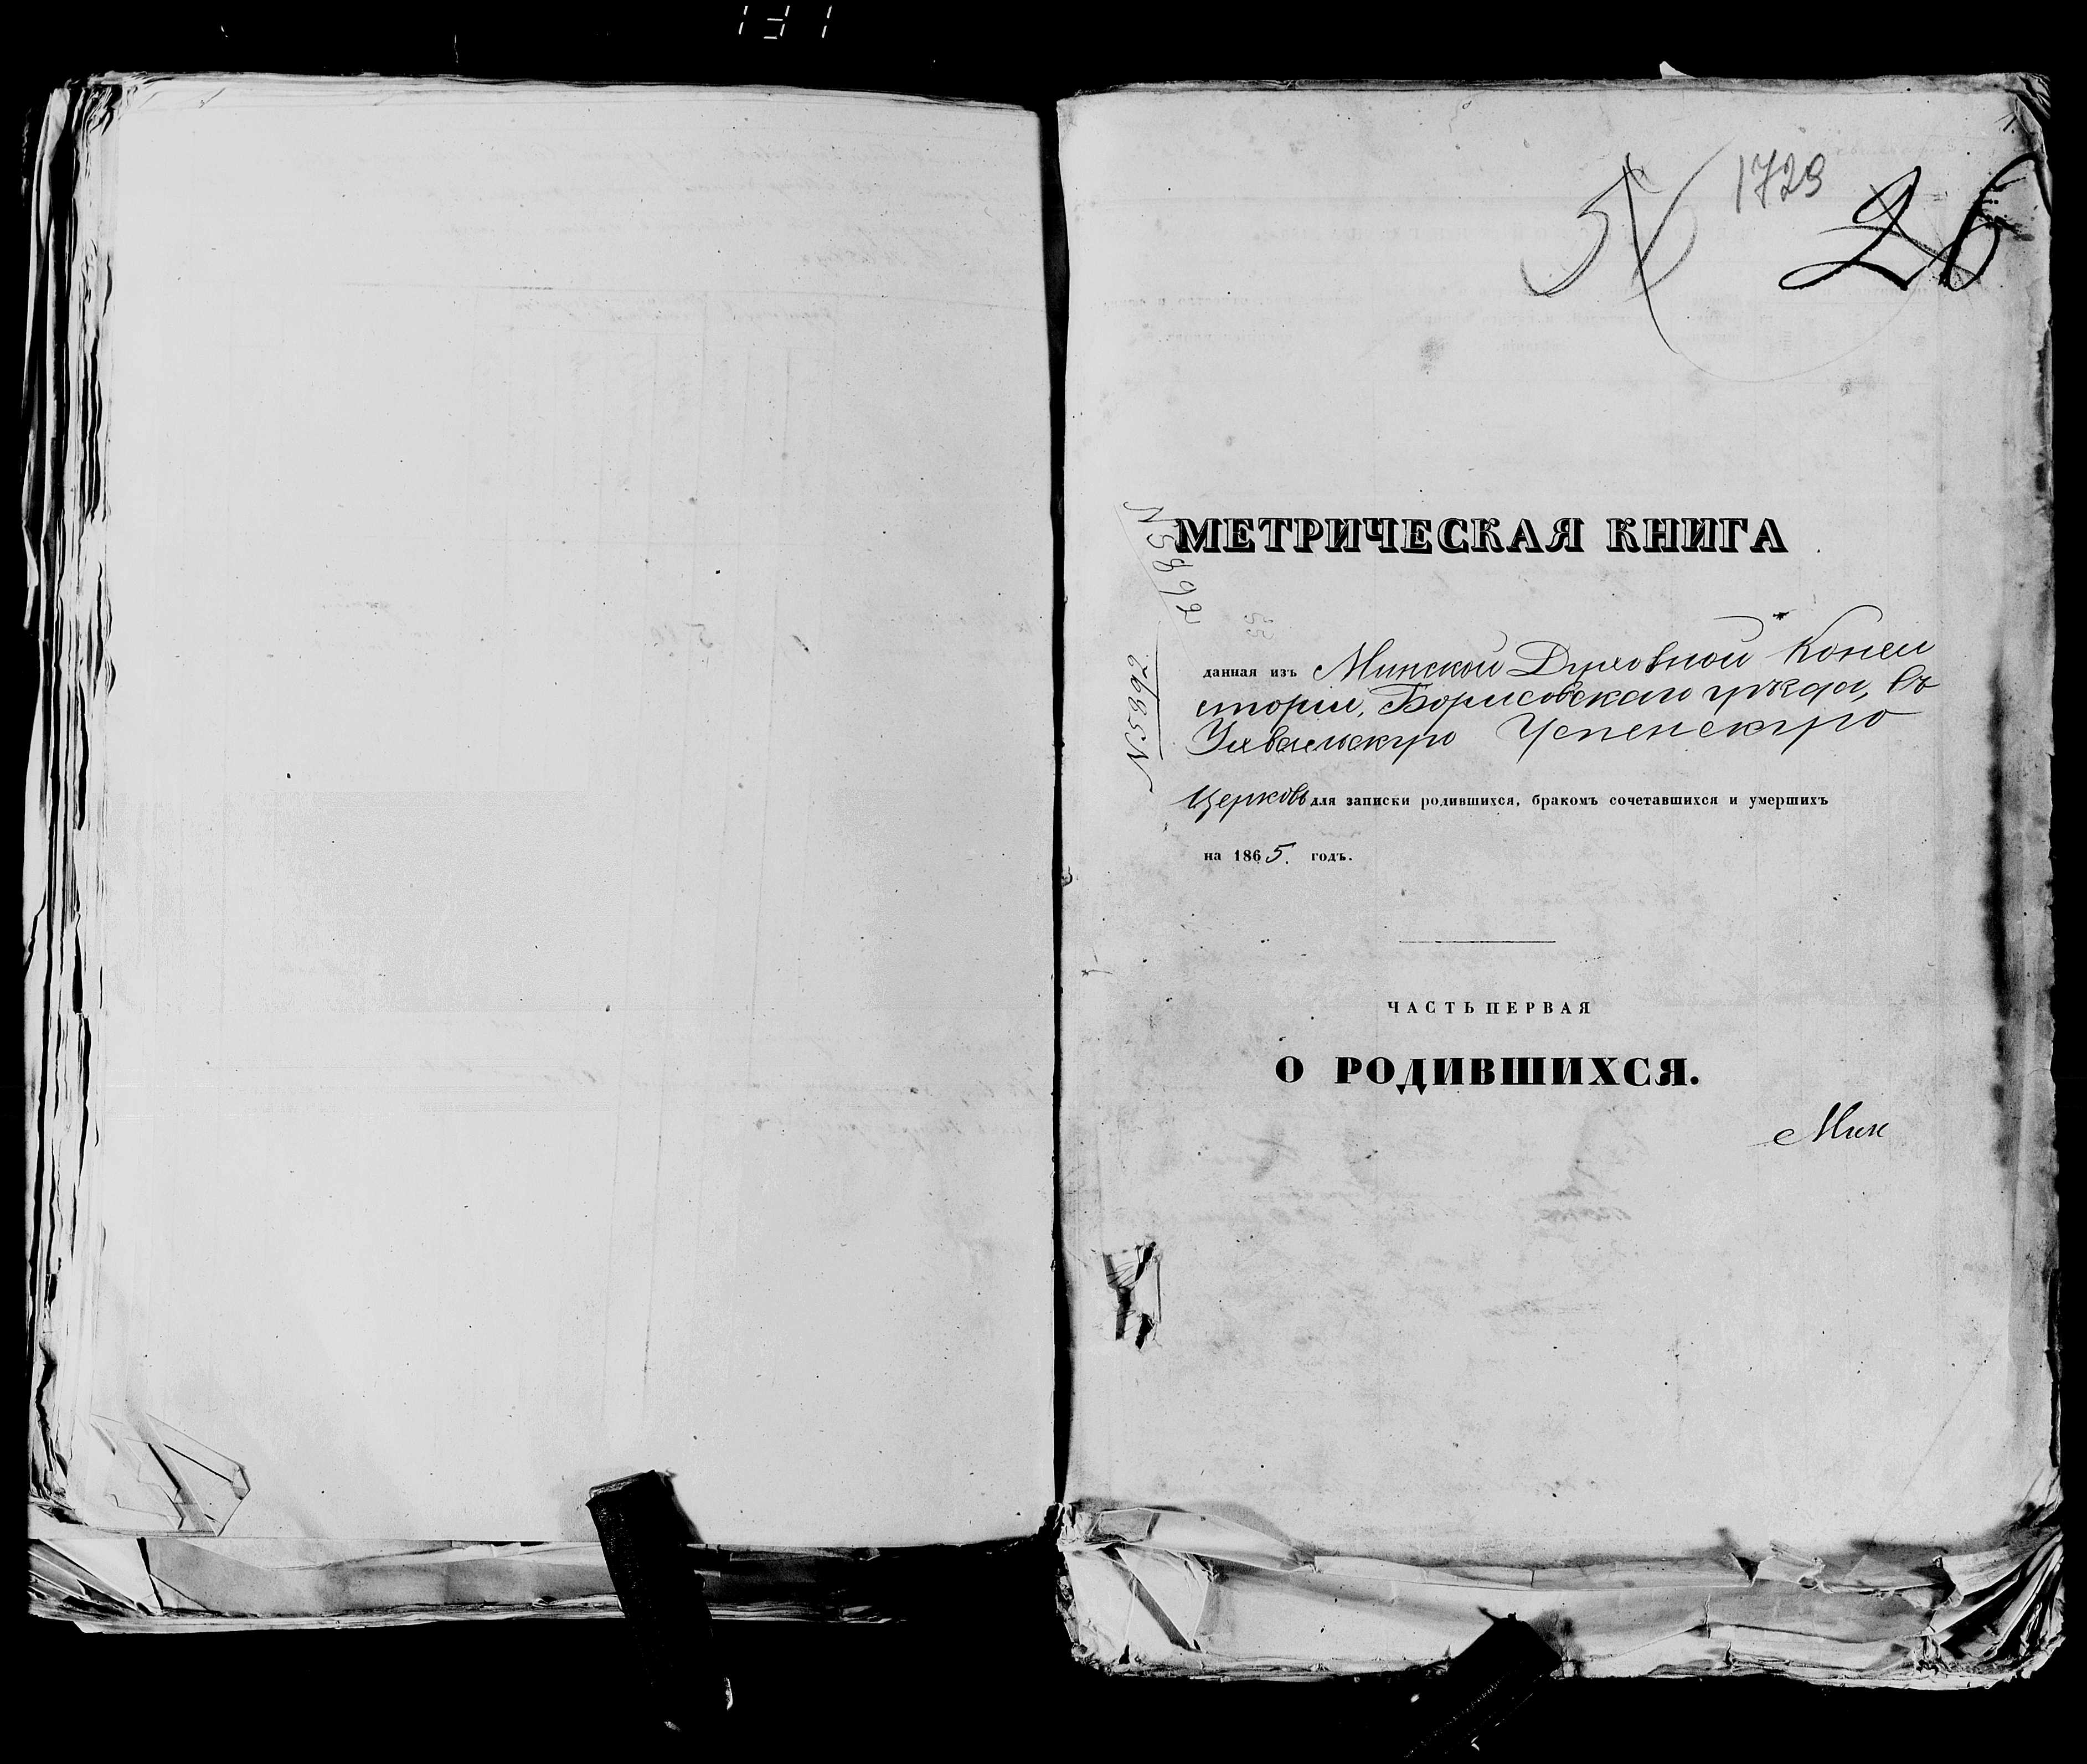 1729
26
МЕТРИЧЕСКАЯ КНИГА
N 5892
N 5892
данная изъ Минской Духовной Конси
сторіи, Борисовскаго уѣзда, въ
Ухвальскую Успенскую
Церковь для записки родившихся, бракомъ сочетавшихся и умершихъ
на 1865. годъ.
ЧАСТЬ ПЕРВАЯ
О РОДИВШИХСЯ.
Мин